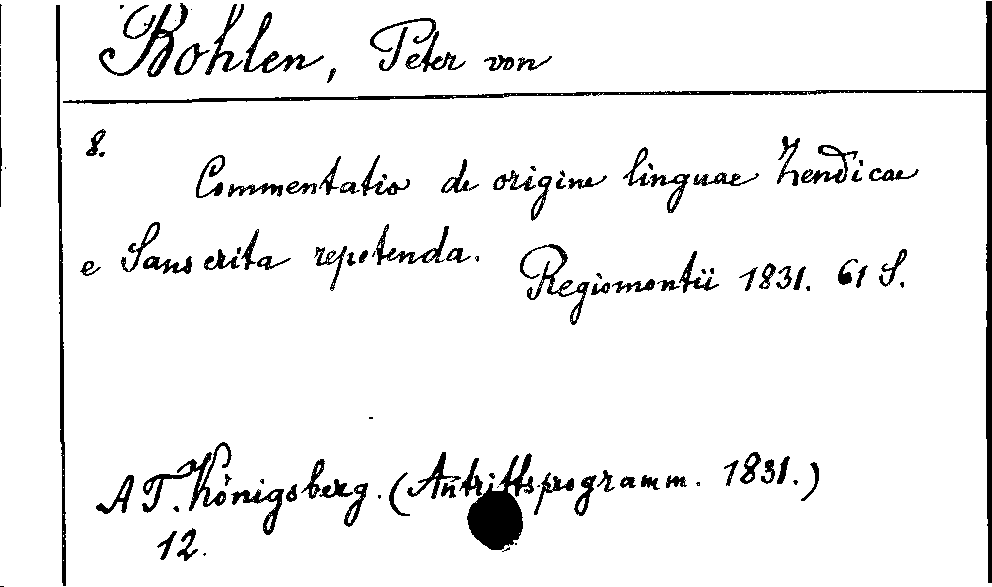 Bohlen, Peter von
8.
Commentatio de origine linguae Zendicae
e Sanscrita repetenda. Regiomontii 1831. 61 S.
AT. Königsberg. (Antrittsprogramm. 1831.)
12.